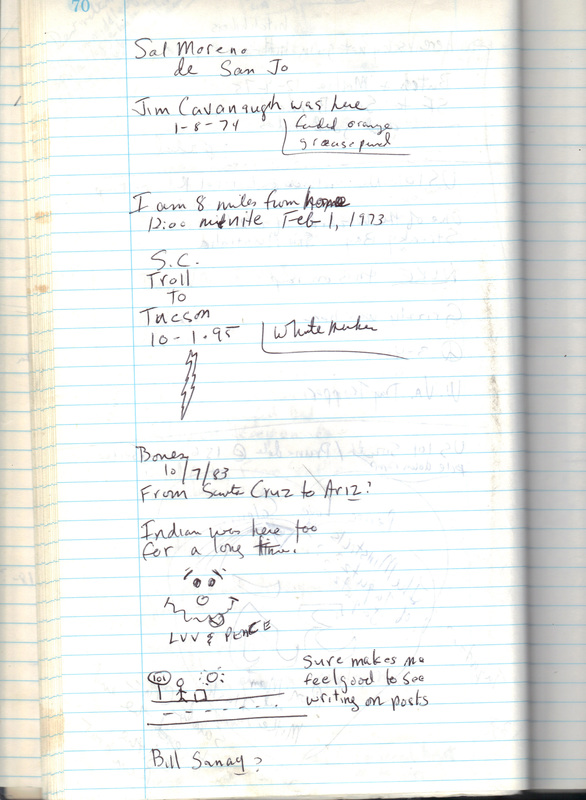 70
Sal Moreno
de San Jo
Jim Cavanaugh was here
1-8-74
faded orange
grease pencil
I am 8 miles from home
12:00 midnite Feb 1, 1973
S.C.
Troll
To
Tucson
10-1-95
White marker
Bones
10/7/83
From Santa Cruz to Ariz?
Indian was here too
for a long time.
LUV & PEACE
101
Sure makes me
feel good to see
writing on posts
Bill Sanay?